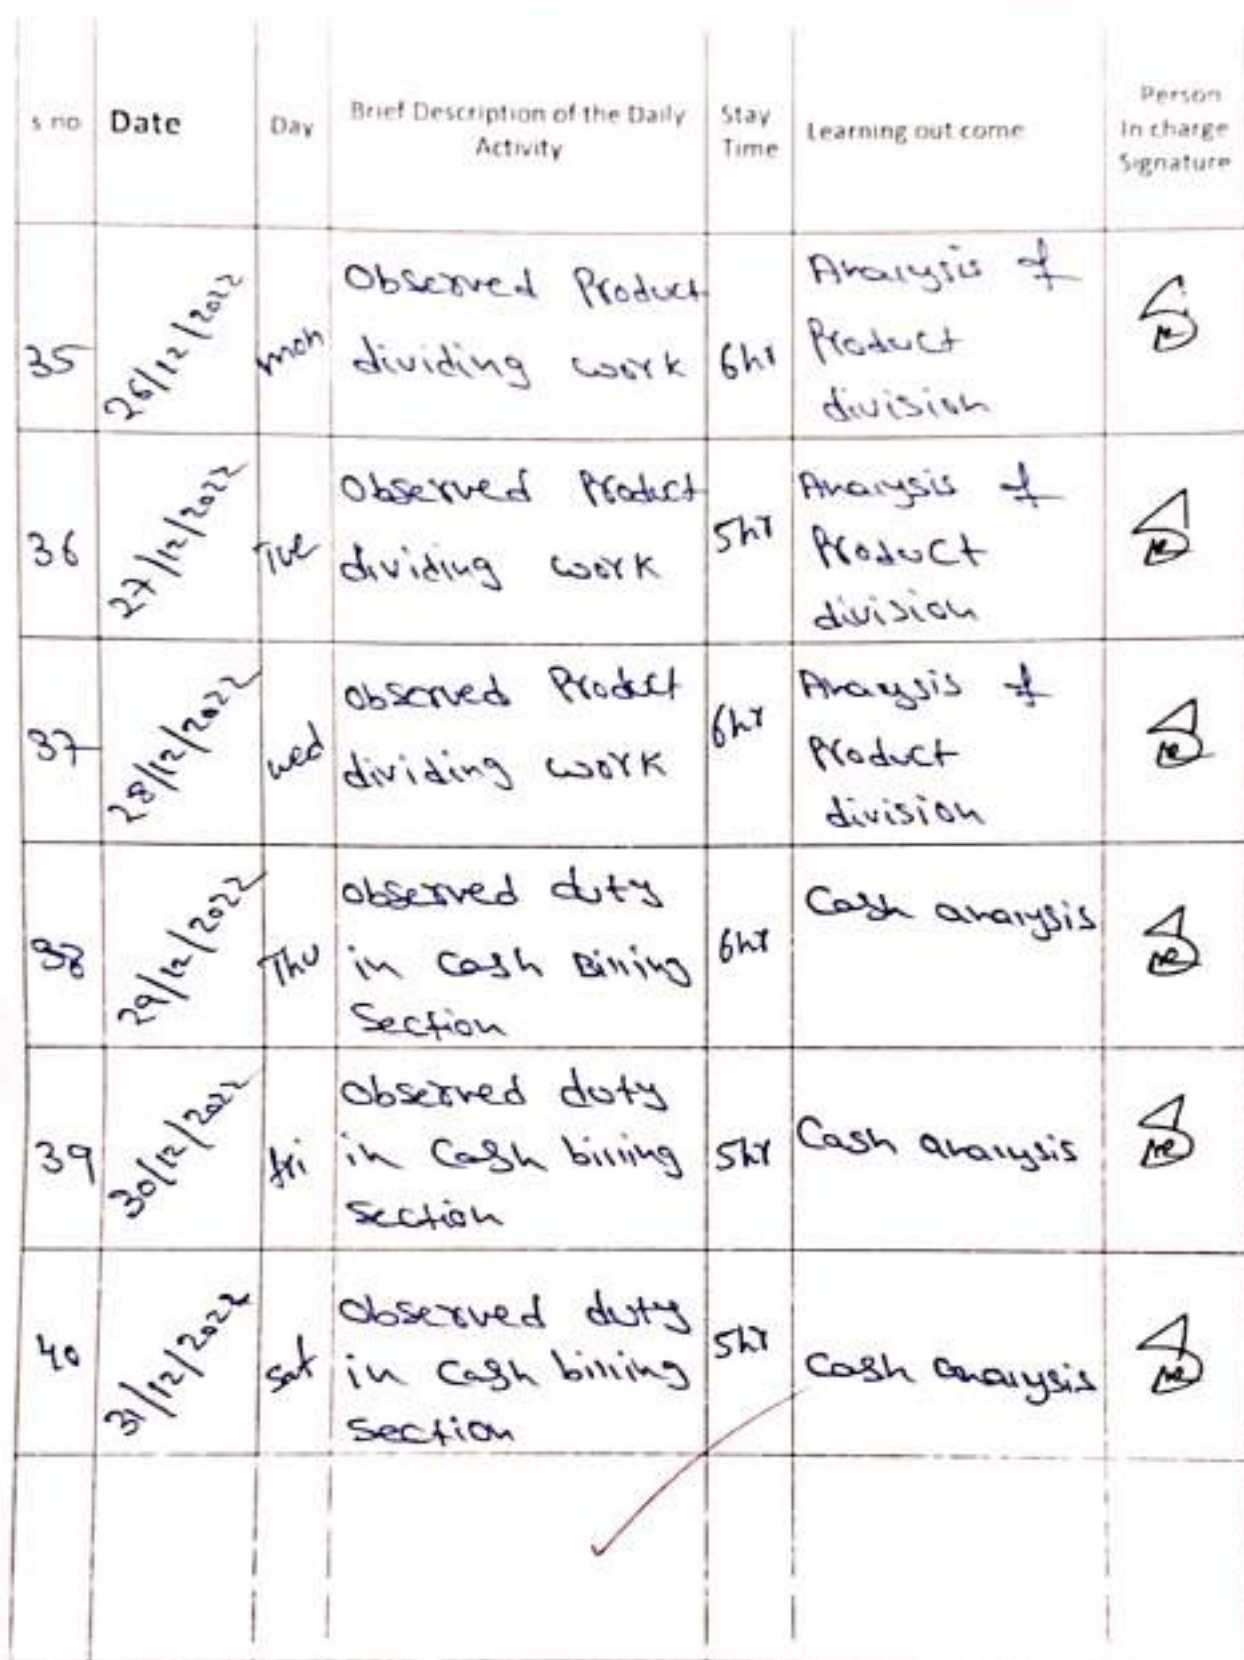 s no Date Day Brief Description of the Daily Activity Stay Time Learning out come Person In charge Signature
35 26/12/2022 mon Observed Product dividing work 6hr Analysis of Product division
36 27/12/2022 Tue Observed Product dividing work 5hr Analysis of Product division
37 28/12/2022 wed observed Product dividing work 6hr Analysis of Product division
38 29/12/2022 Thu observed duty in Cash Billing Section 6hr Cash analysis
39 30/12/2022 fri observed duty in Cash billing section 5hr Cash analysis
40 31/12/2022 Sat observed duty in Cash billing section 5hr Cash analysis